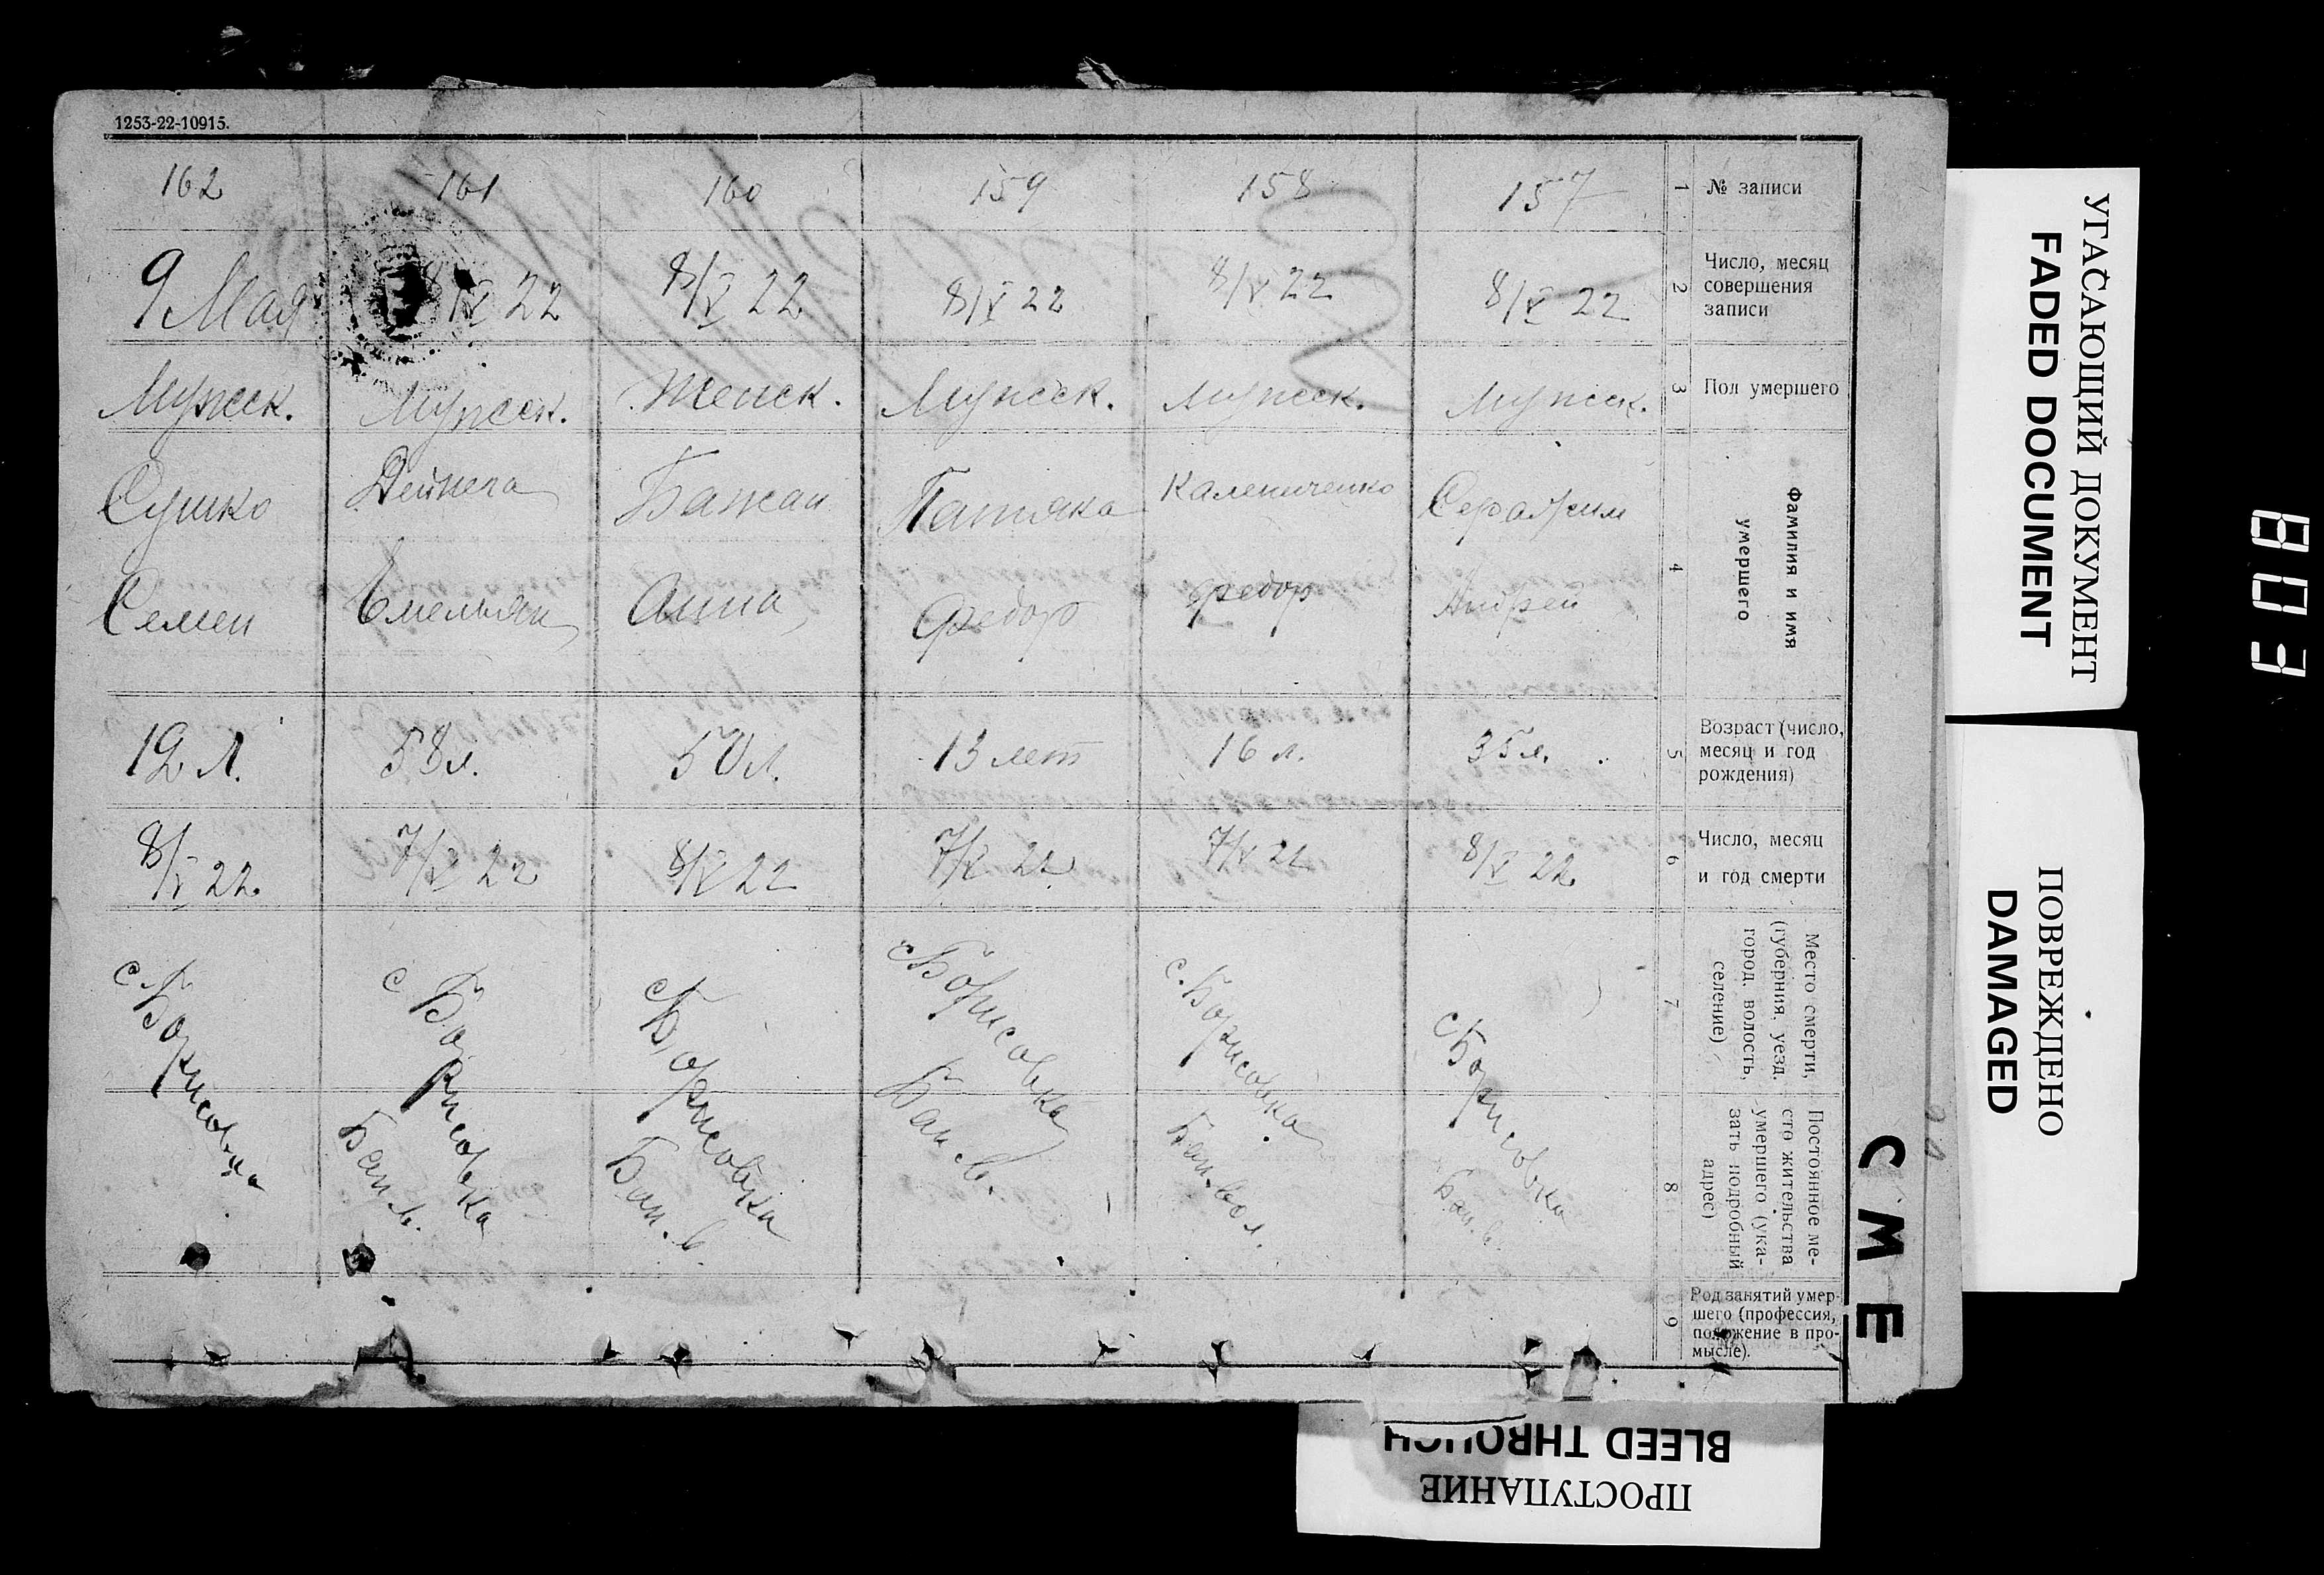 1253-22-10915.
162 161 160 159 158 157 1 № записи
9 Мая 8/V 22 8/V 22 8/V 22 8/V 22 8/V 22 2 Число, месяц
совершения
записи
Мужск. Мужск. Женск. Мужск. Мужск. Мужск. 3 Пол умершего
Сушко Дейнега Бажан Патяка Калениченко Серафим 4 Фамилия и имя
умершего
Семен Емельян Анна Федор Федор Андрей
12 л. 58 л. 50 л. 13 лет 16 л. 35 л. 5 Возраст (число,
месяц и год
рождения)
8/V 22. 7/V 22 8/V 22 7/V 22 7/V 22 8/V 22. 6 Число, месяц
и год смерти
с. Борисовка с Борисовка с Борисовка с Борисовка с. Борисовка с Борисовка 7 Место смерти,
(губерния, уезд,
город, волость,
селение)
Бан. в. Бан. в. Бан. в. Бан. вол. Бан. в. 8 Постоянное ме-
сто жительства
умершего (ука-
зать подробный
адрес)
9 Род занятий умер-
шего (профессия,
положение в про-
мысле).
УГАСАЮЩИЙ ДОКУМЕНТ
FADED DOCUMENT
ПОВРЕЖДЕНО
DAMAGED
СМЕ
803
BLEED THROUGH
ПРОСТУПАНИЕ